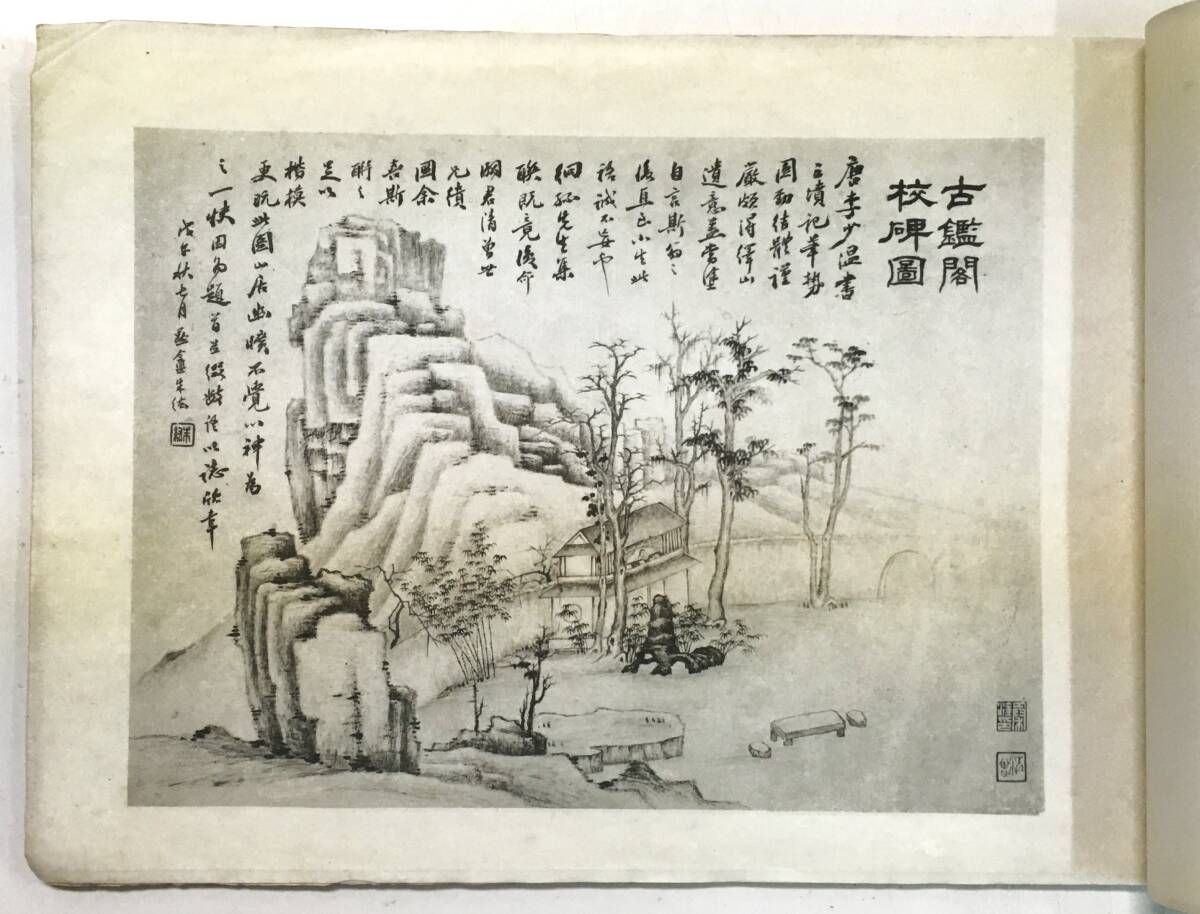 古鑑閣
校碑圖
唐李少溫書
三墳記筆勢
圓勁結體謹
嚴頗得嶧山
遺意蓋當塗
自言斯翁之
後直至小生此
語誠不妄也
絅孫先生集
聯既竟復介
君清曾世
兄績
圖余
喜斯
聯之
足以
楷模
更玩此圖山居幽曠不覺心神為
之一快因為題首並綴數語以誌欣幸
戊午秋七月 盦朱